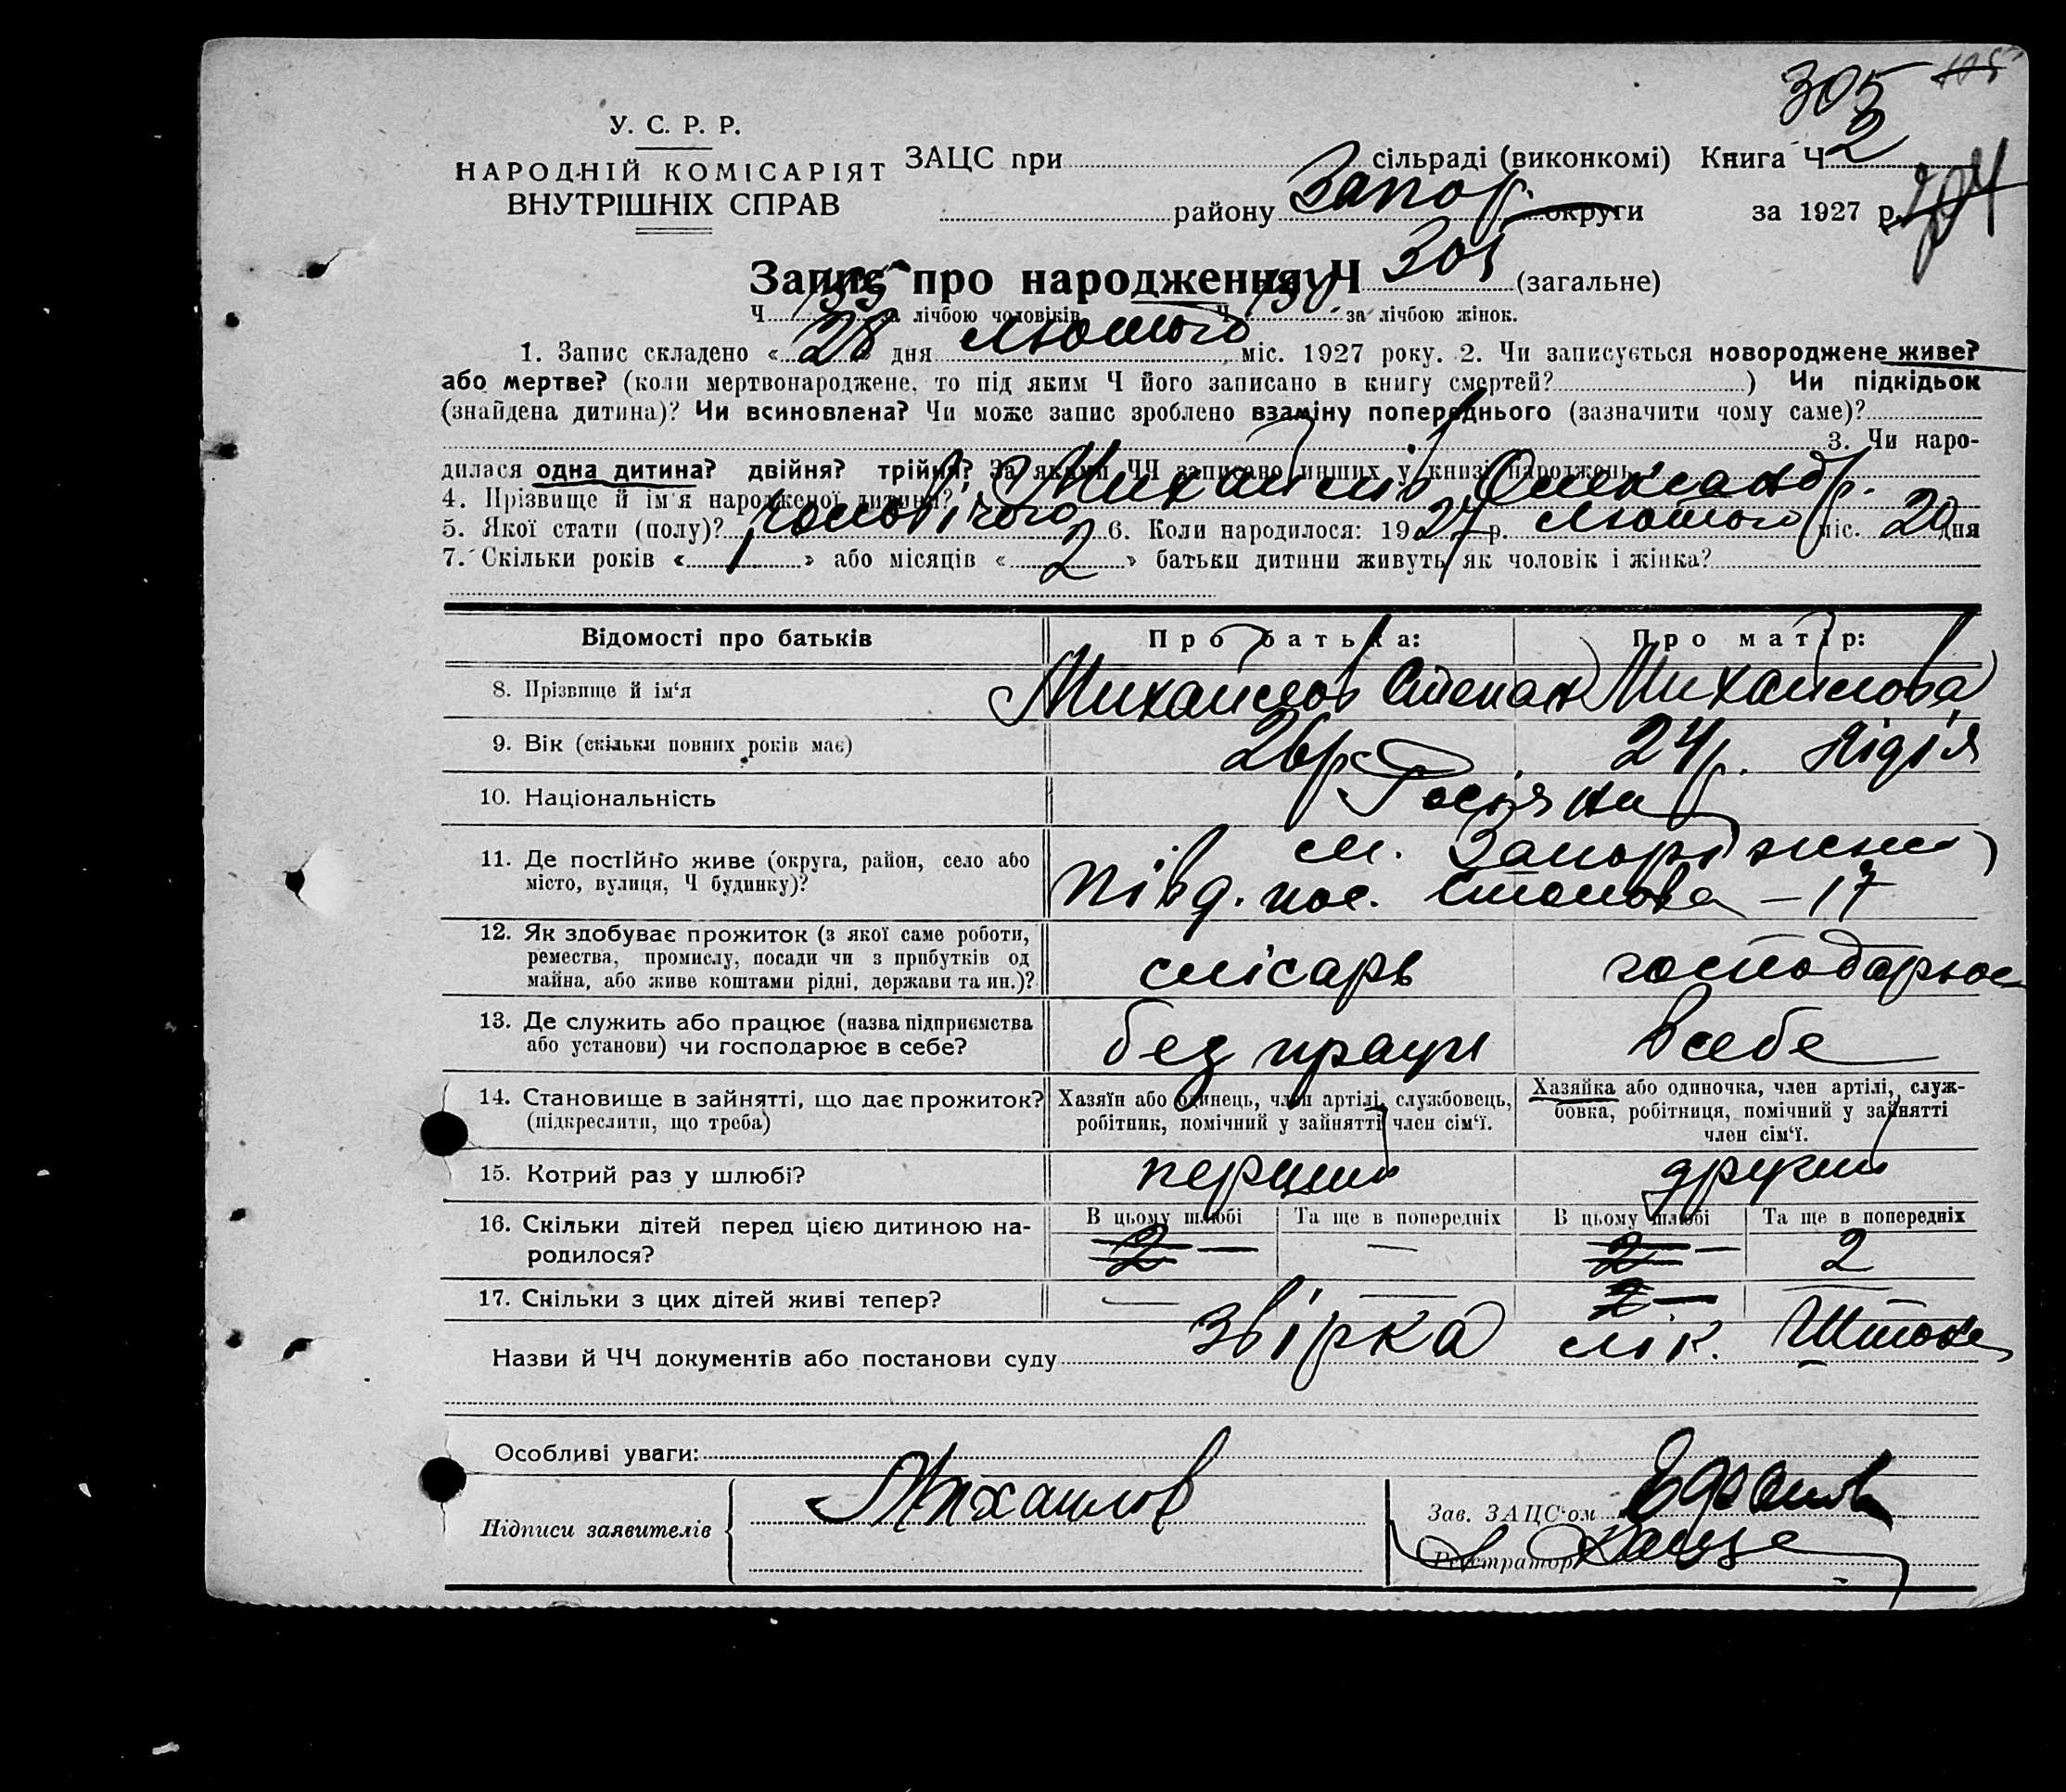 305
У. С. Р. Р.
НАРОДНІЙ КОМІСАРІЯТ
ВНУТРІШНІХ СПРАВ
ЗАЦС при сільраді (виконкомі) Книга Ч 2
району Запор. округи за 1927 р.
Запис про народження Ч 305 (загальне)
Ч 155 за лічбою чоловіків Ч 150 за лічбою жінок.
1. Запис складено « 28 » дня лютого міс. 1927 року. 2. Чи записується новороджене живе?
або мертве? (коли мертвонароджене, то під яким Ч його записано в книгу смертей? ) Чи підкідьок
(знайдена дитина)? Чи всиновлена? Чи може запис зроблено взаміну попереднього (зазначити чому саме)?
3. Чи наро-
дилася одна дитина? двійня? трійня? За якими ЧЧ записано инших у книзі народжень?
4. Прізвище й ім'я народженої дитини? Михайлов Олександр.
5. Якої стати (полу)? чоловічого 6. Коли народилося: 1927 р. лютого міс. 20 дня
7. Скільки років « 1 » або місяців « 2 » батьки дитини живуть як чоловік і жінка?
Відомості про батьків Про батька: Про матір:
8. Прізвище й ім'я Михайлов Степан Михайлова
9. Вік (скільки повних років має) 26 р. 24 р. Лідія
10. Національність Росіяни
11. Де постійно живе (округа, район, село або м. Запоріжжя
місто, вулиця, Ч будинку)? Півд. пос. - 17
12. Як здобуває прожиток (з якої саме роботи,
ремества, промислу, посади чи з прибутків од слісарь господарює
майна, або живе коштами рідні, держави та ин.)?
13. Де служить або працює (назва підприємства
або установи) чи господарює в себе? без праці в себе
14. Становище в зайнятті, що дає прожиток? Хазяїн або одинець, член артілі, службовець, Хазяйка або одиночка, член артілі, служ-
(підкреслити, що треба) робітник, помічний у зайнятті член сім'ї. бовка, робітниця, помічний у зайнятті
член сім'ї.
15. Котрий раз у шлюбі? перший другий
16. Скільки дітей перед цією дитиною на- В цьому шлюбі Та ще в попередніх В цьому шлюбі Та ще в попередніх
родилося? 2 — — 2 — 2
17. Скільки з цих дітей живі тепер? — — 2 — —
Назви й ЧЧ документів або постанови суду звірка лік.
Особливі уваги:
Підписи заявителів Михайлов Зав. ЗАЦС'ом
Реєстратор